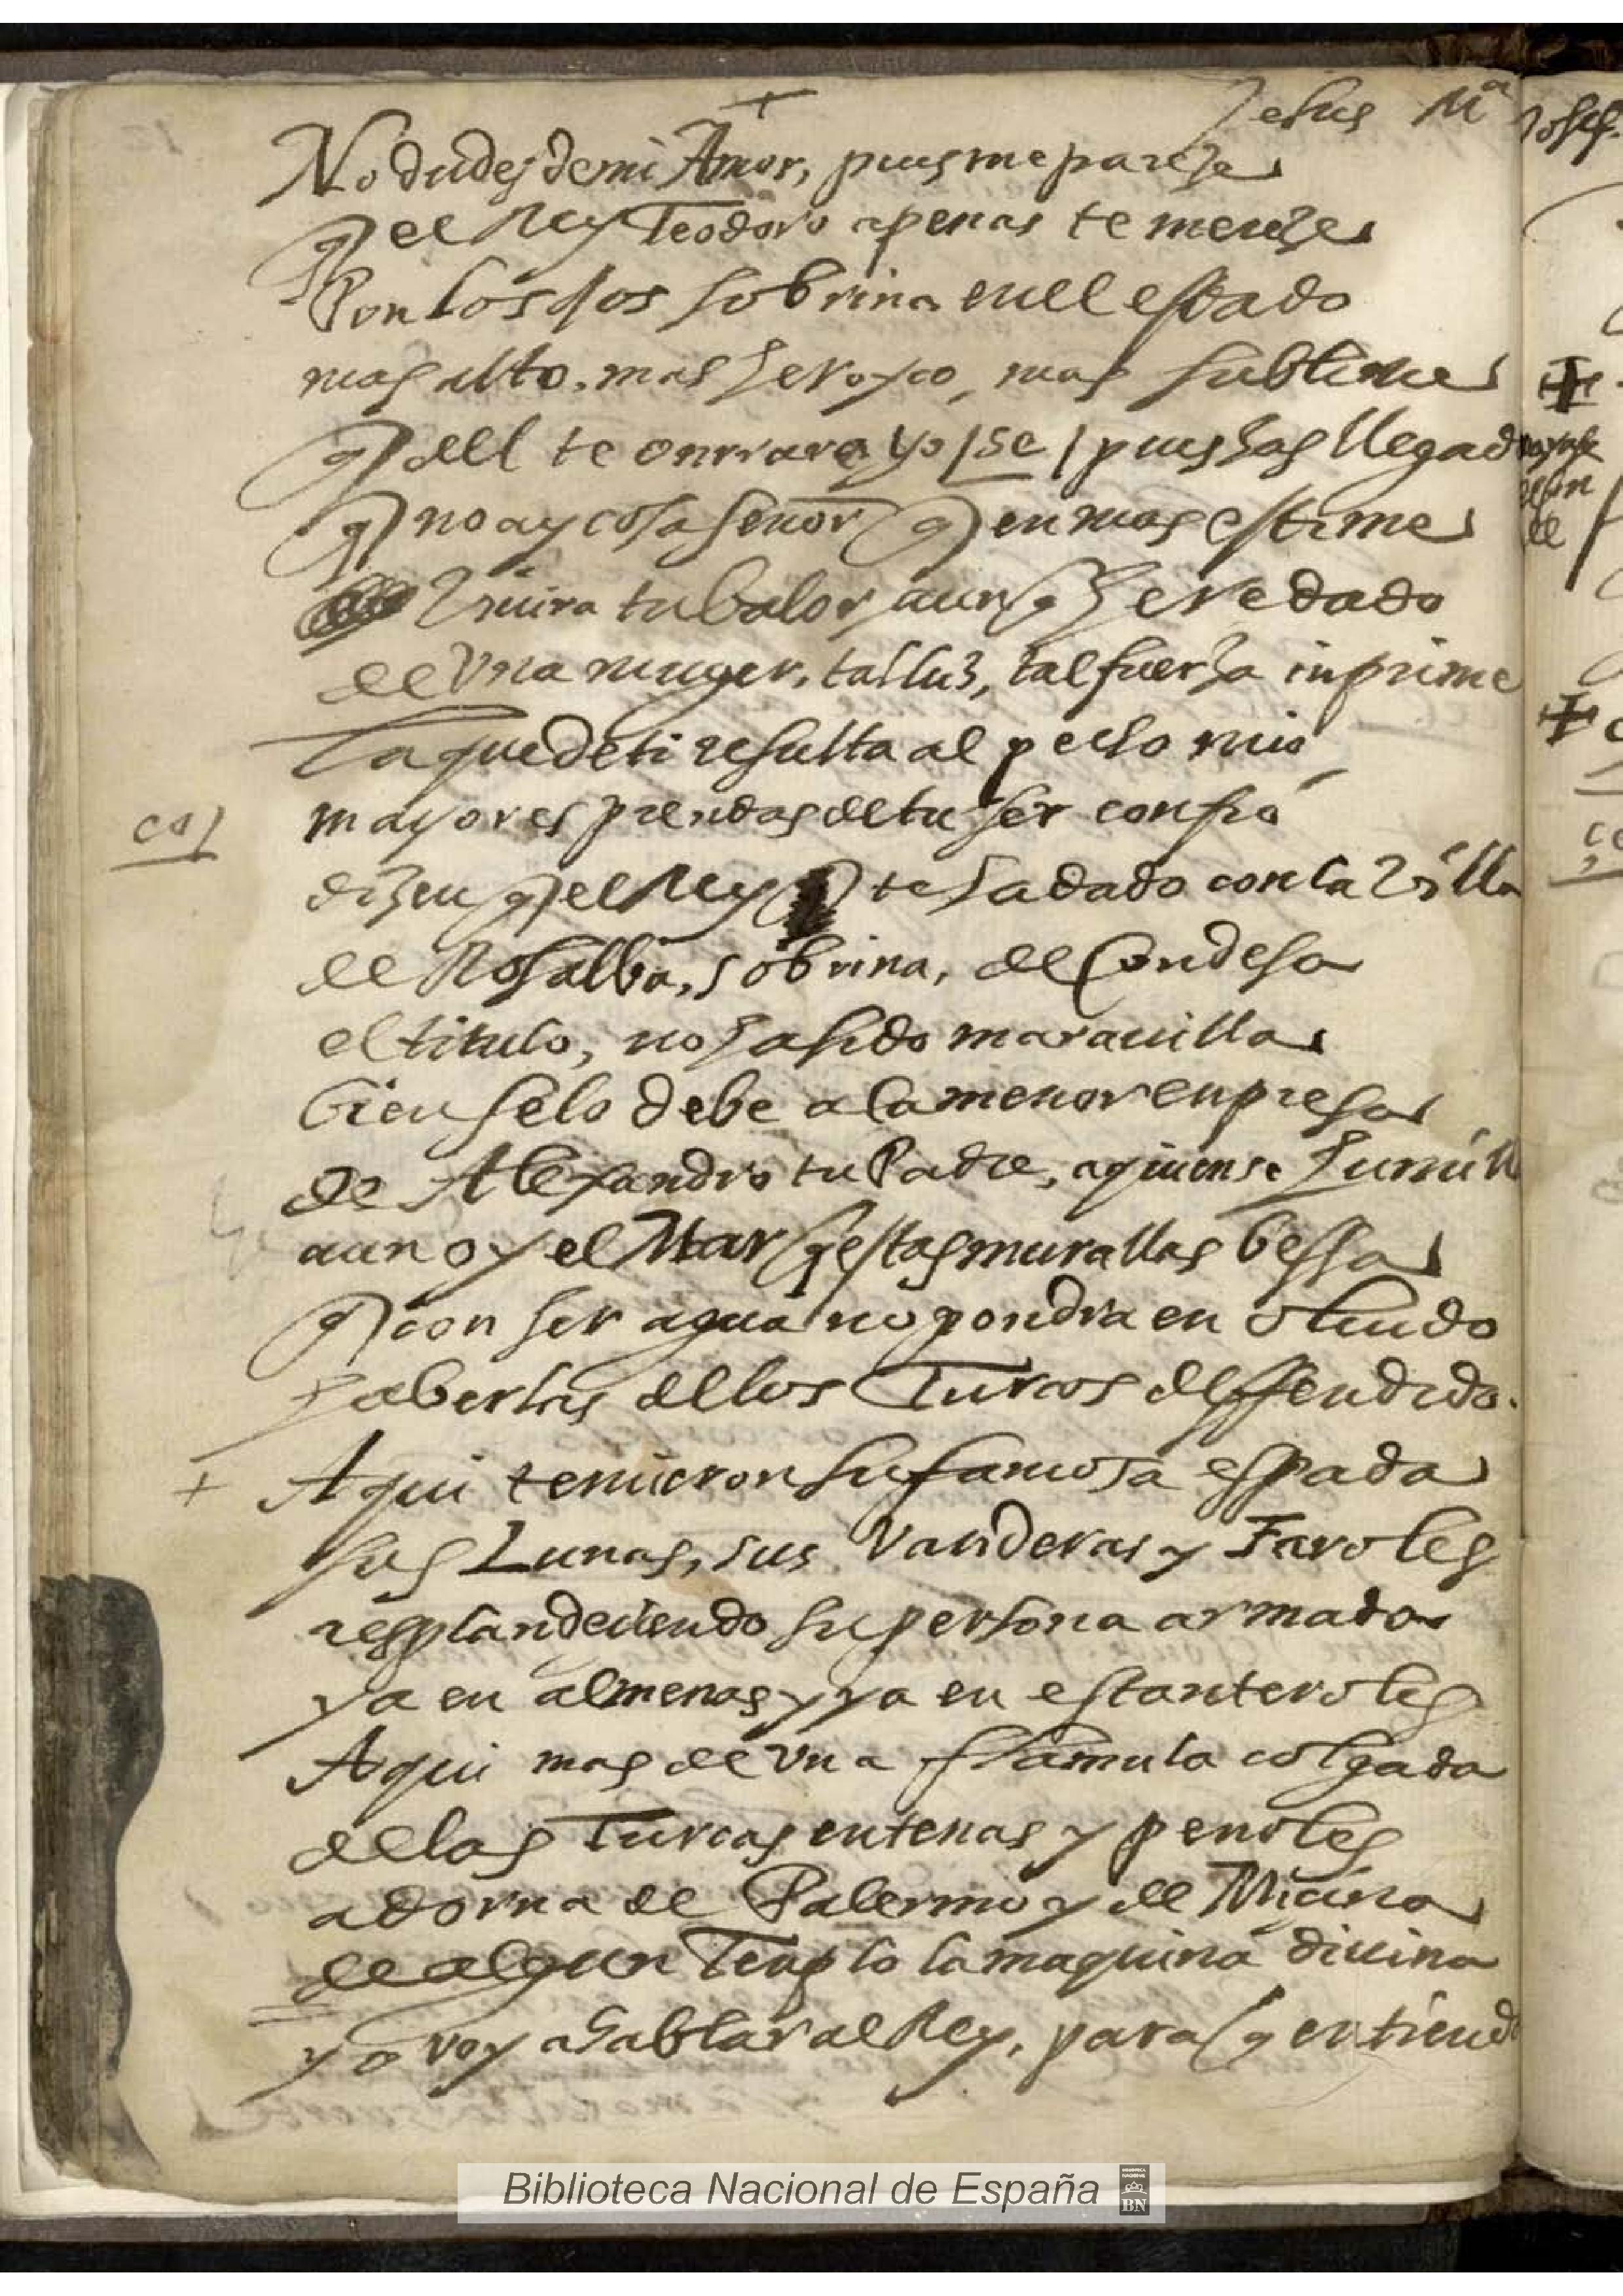 Jesus Mª
+
No dudes de mi Amor, pues me pareze
q el Rey Teodoro apenas te mereze
Pon los ojos sobrina en el estado
mas alto, mas heroyco, mas sublime
q del te onrrara yo / se / pues has llegado
q no ay cosa señor q en mas estime
mira tu balor aunq heredado
de Vna muger, tal luz, tal fuerza inprime
la que de ti resulta al pecho mio
mayores prendas de tu ser confio
co/
dizen q el Rey te ha dado con la Villa
de Rosalba, sobrina, de Condesa
el titulo, no ha sido marauilla
bien se lo debe a la menor enpresa
de Alexandro tu Padre, a quien se humilla
aun oy el Mar q estas murallas bessa
q con ser agua no pondra en oluido
haberlas de los Turcos deffendido.
+ Aqui temieron su famosa espada
sus Lunas, sus Vanderas y Faroles
resplandeciendo su persona armada
ya en almenas y ya en estanteroles
Aqui mas de Vna flamula colgada
de las Turcas entenas y penoles
adorna de Palermo y de Miçina
de algun Templo la maquina diuina
yo voy a hablar al Rey, para q entiend
Biblioteca Nacional de España
BN